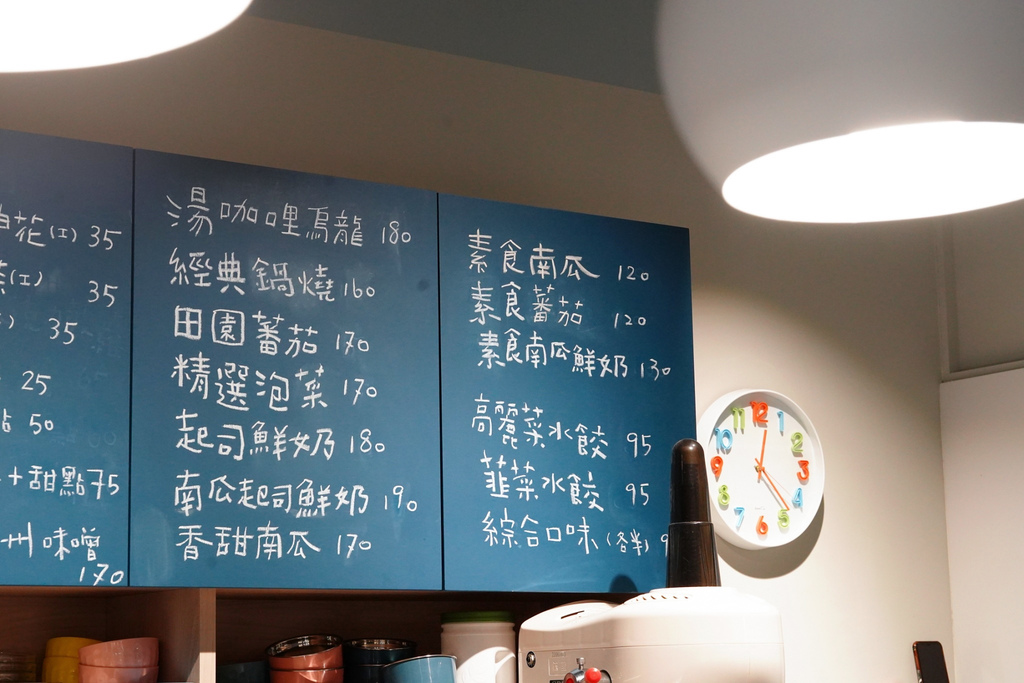 花(工) 35
(工) 35
35
25
50
+甜點 75
州味噌
170
湯咖哩烏龍 180
經典鍋燒 160
田園蕃茄 170
精選泡菜 170
起司鮮奶 180
南瓜起司鮮奶 190
香甜南瓜 170
素食南瓜 120
素食蕃茄 120
素食南瓜鮮奶 130
高麗菜水餃 95
韮菜水餃 95
綜合口味(各半)
12
1
2
3
4
5
6
7
8
9
10
11